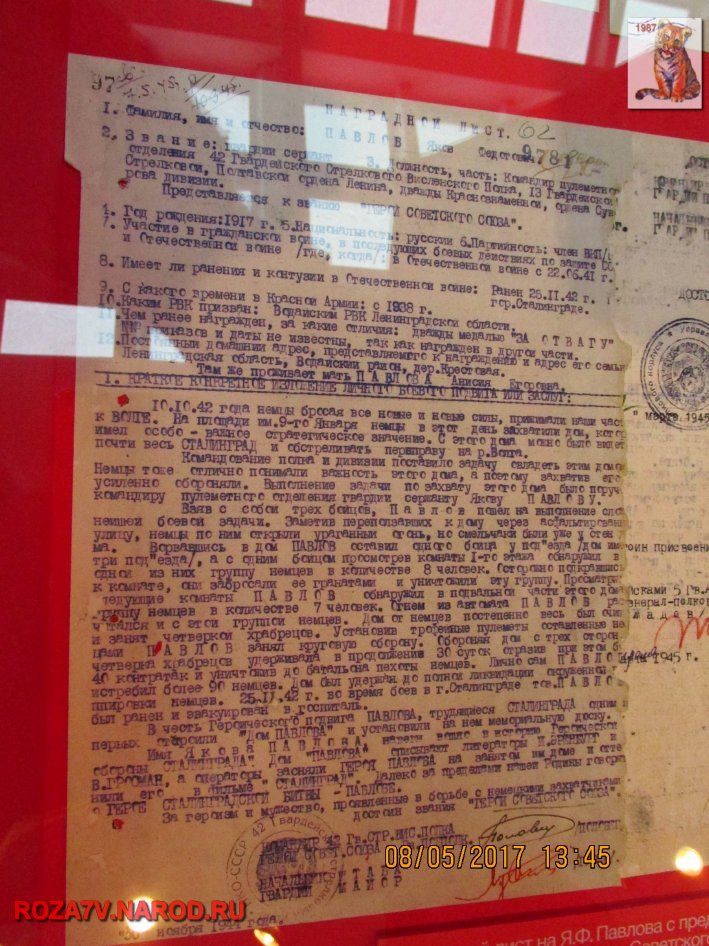 1987
НАГРАДНОЙ ЛИСТ. 62
1. Фамилия, имя и отчество: ПАВЛОВ Яков Федотович
9781
2. Звание: гвардии сержант 3. Должность, часть: Командир пулеметного
отделения 42 Гвардейского Стрелкового Висленского Полка, 13 Гвардейской
Стрелковой, Полтавской ордена Ленина, дважды Краснознаменной, ордена Суво
рова дивизии.
Представляется к званию "ГЕРОЙ СОВЕТСКОГО СОЮЗА".
4. Год рождения: 1917 г. 5. Национальность: русский 6. Партийность: член ВКП/
7. Участие в гражданской войне, в последующих боевых действиях по защите СС
и Отечественной войне /где, когда/: в Отечественной войне с 22.06.41 г.
8. Имеет ли ранения и контузии в Отечественной войне: Ранен 25.11.42 г.
гор. Сталинграде.
9. С какого времени в Красной Армии: с 1938 г.
10. Каким РВК призван: Водайским РВК Ленинградской области.
11. Чем ранее награжден, за какие отличия: дважды медалью "ЗА ОТВАГУ"
приказов и даты не известны, так как награжден в другой части.
12. Постоянный домашний адрес, представляемого к награждению и адрес его семьи
Ленинградская область, Водайский район, дер. Крестовая.
Там же проживает мать ПАВЛОВА Анисия Егоровна.
1. КРАТКОЕ КОНКРЕТНОЕ ИЗЛОЖЕНИЕ ЛИЧНОГО БОЕВОГО ПОДВИГА ИЛИ ЗАСЛУГ:
10.10.42 года немцы бросая все новые и новые силы, прижимали наши час
к ВОЛГЕ. На площади им. 9-го Января немцы в этот день захватили дом, котор
имел особо-важное стратегическое значение. С этого дома можно было видет
почти весь СТАЛИНГРАД и обстреливать переправу на р. Волга.
Командование полка и дивизии поставило задачу овладеть этим домо
Немцы тоже отлично понимали важность этого дома, а поэтому захватив его
усиленно обороняли. Выполнение задачи по захвату этого дома было поруч
командиру пулеметного отделения гвардии сержанту Якову ПАВЛОВУ.
Взяв с собой трех бойцов, Павлов пошел на выполнение сло
нейшей боевой задачи. Заметив переползавших к дому через асфальтирован
улицу, немцы по ним открыли ураганный огонь, но смельчаки были уже у стен
ма. Ворвавшись в дом ПАВЛОВ оставил одного бойца у под"езда /дом име
три под"езда/, а с одним бойцом просмотрев комнаты 1-го этажа обнаружил в
одной из них группу немцев в количестве 8 человек. Осторожно подкравшис
к комнате, они забросали ее гранатами и уничтожили эту группу. Просматри
ледующие комнаты ПАВЛОВ обнаружил в подвальной части этого дома
группу немцев в количестве 7 человек. Огнем из автомата ПАВЛОВ рас
читался и с этой группой немцев. Дом от немцев постепенно весь был очищ
и занят четверкой храбрецов. Установив трофейные пулеметы оставленные не
цами ПАВЛОВ занял круговую оборону. Обороняя дом с трех сторон
четверка храбрецов удерживала в продолжении 30 суток отразив при этом б
40 контратак и уничтожив до батальона пехоты немцев. Лично сам ПАВЛО
истребил более 90 немцев. Дом был удержан до полной ликвидации окруженной г
ппировки немцев. 25.11.42 г. во время боев в г. Сталинграде тов. ПАВЛО
был ранен и эвакуирован в госпиталь.
В честь Героического подвига ПАВЛОВА, трудящиеся СТАЛИНГРАДА одним и
первых отстроили "ДОМ ПАВЛОВА" и установили на нем мемориальную доску.
Имя ЯКОВА ПАВЛОВА навеки вошло в историю Героической
обороны СТАЛИНГРАДА. Дом "ПАВЛОВА" описывают литераторы
В. ГРОСМАН, а операторы засняли ГЕРОЯ ПАВЛОВА на занятом им доме и
нили его в фильме СТАЛИНГРАД. Далеко за пределами нашей Родины говоря
о ГЕРОЕ СТАЛИНГРАДСКОЙ БИТВЫ - ПАВЛОВЕ.
За героизм и мужество, проявленные в борьбе с немецкими захватчиками
достоин звания "ГЕРОЙ СОВЕТСКОГО СОЮЗА".
КОМАНДИР 42 ГВ. СТР. ВИС. ПОЛКА
ГВАРДИИ МАЙОР
ноября 1944 года.
марта 1945
1945 г.
08/05/2017 13:45
ROZA7V.NAROD.RU
лист на Я.Ф. Павлова с пред